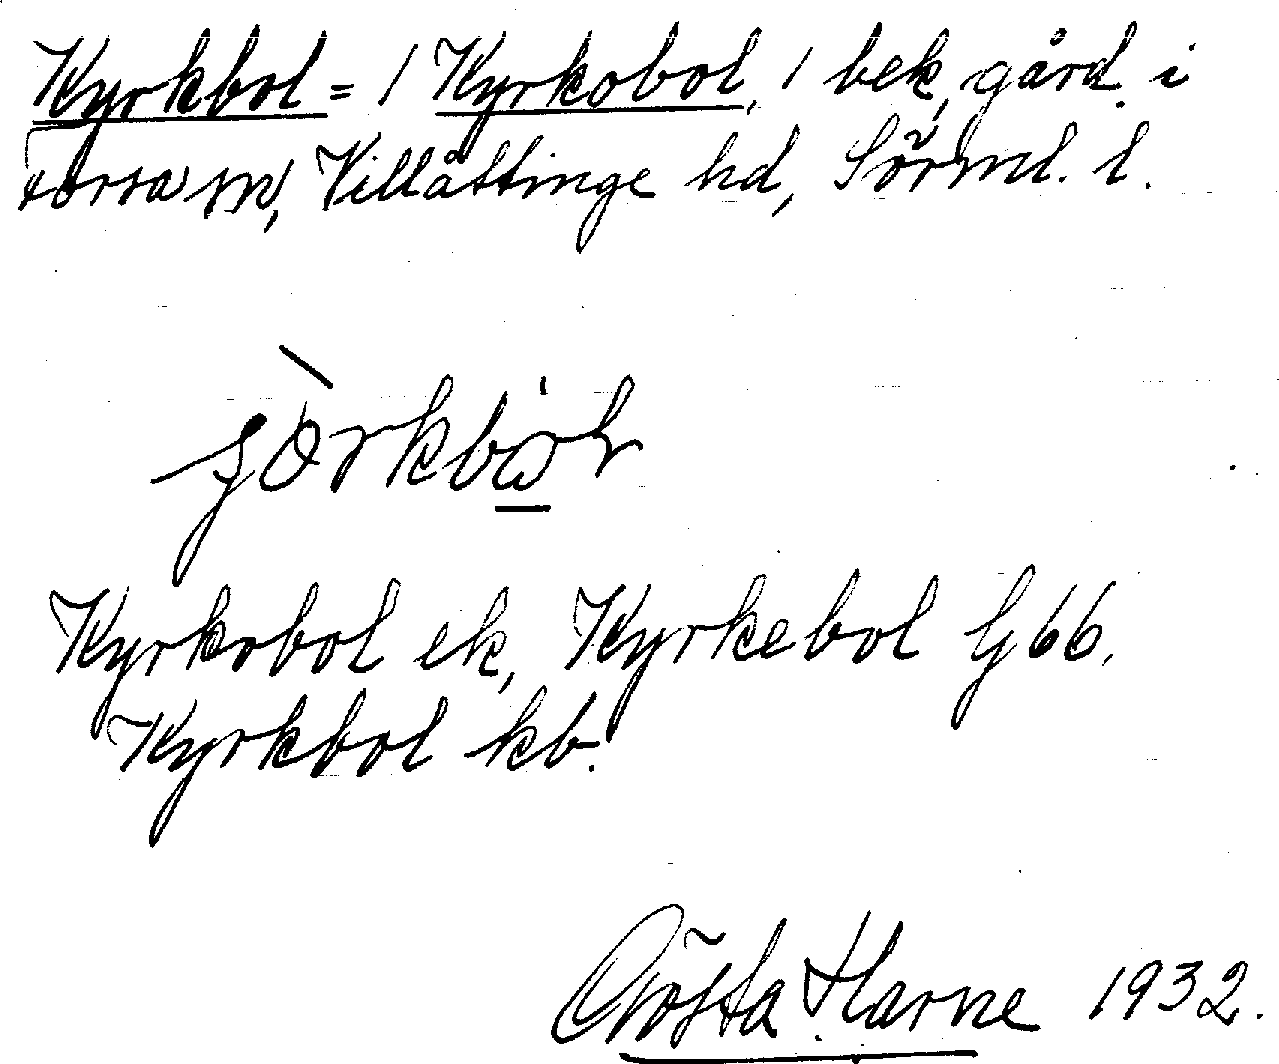 Kyrkbol = / Kyrkobol, / bek. gård. i
Forssa sn, Villåttinge hd, Sörml. l.
Kyrkobol ek, Kyrkebol G 66.
Kyrkbol kb.
Gösta Harne 1932.